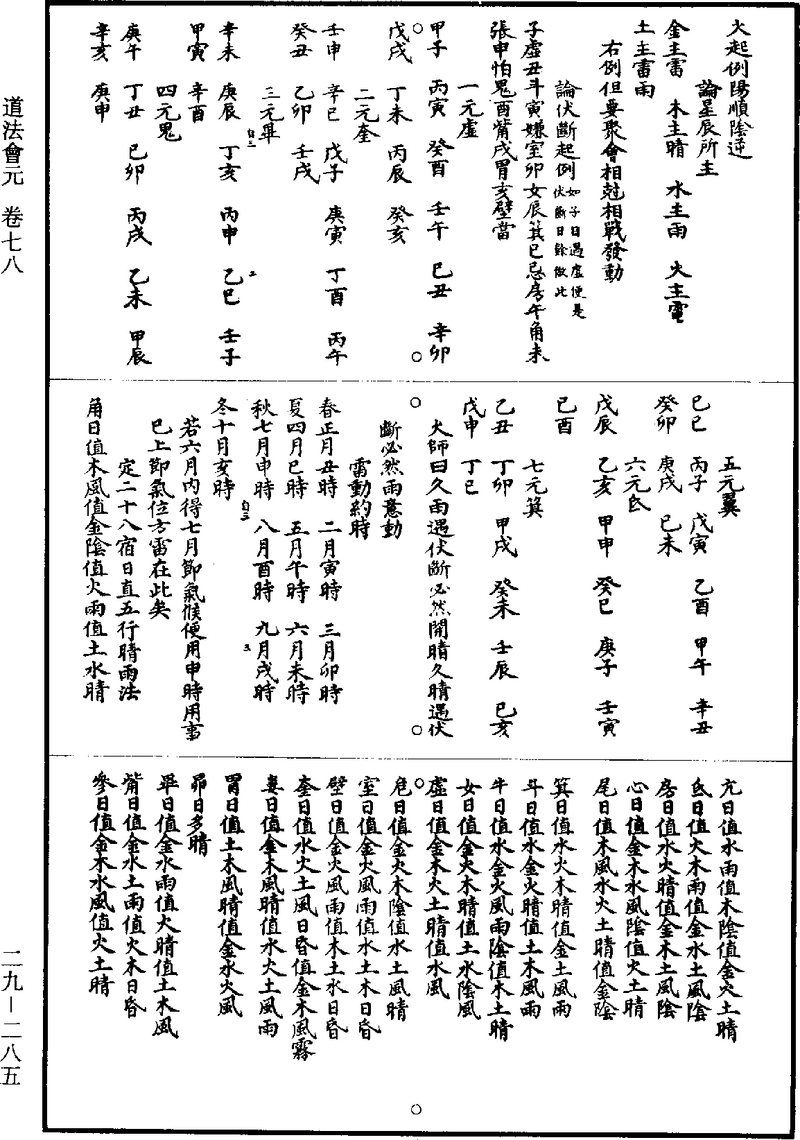 火起例陽順陰逆
論星辰所主
金主雷　木主晴　水主雨　火主電
土主雷雨
右例但要聚會相尅相戰發動
論伏斷起例如子日遇虛便是伏斷日餘倣此
子虛丑斗寅嫌室卯女辰箕巳忌房午角未
張申怕鬼酉觜戌胃亥壁當
一元虛
甲子　丙寅　癸酉　壬午　己丑　辛卯
戊戌　丁未　丙辰　癸亥
二元奎
壬申　辛巳　戊子　庚寅　丁酉　丙午
癸丑　乙卯　壬戌
三元畢
辛未　庚辰　丁亥　丙申　乙巳　壬子
甲寅　辛酉
四元鬼
庚午　丁丑　己卯　丙戌　乙未　甲辰
辛亥　庚申
五元翼
己巳　丙子　戊寅　乙酉　甲午　辛丑
癸卯　庚戌　己未
六元氐
戊辰　乙亥　甲申　癸巳　庚子　壬寅
己酉
七元箕
乙丑　丁卯　甲戌　癸未　壬辰　己亥
戊申　丁巳
火師曰久雨遇伏斷必然開晴久晴遇伏
斷必然雨意動
雷動約時
春正月丑時　二月寅時　三月卯時
夏四月巳時　五月午時　六月未時
秋七月申時　八月酉時　九月戌時
冬十月亥時
若六月內得七月節氣候便用申時用事
已上節氣位方雷在此矣
定二十八宿日直五行晴雨法
角日值木風值金陰值火雨值土水晴
亢日值水雨值木陰值金火土晴
氐日值火木雨值金水土風陰
房日值水火晴值金木土風陰
心日值金木水風陰值火土晴
尾日值木風水火土晴值金陰
箕日值水火木晴值金土風雨
斗日值水金火晴值土木風雨
牛日值水金火風雨陰值木土晴
女日值金火木晴值土水陰風
虛日值金木火土晴值水風
危日值金火木陰值水土風晴
室日值金火風雨值水土木日昏
壁日值金火風雨值木土水日昏
奎日值水火土風日昏值金木風霧
婁日值金木風晴值水火土風雨
胃日值土木風晴值金水火風
昴日多晴
畢日值金水雨值火晴值土木風
觜日值金水土雨值火木日昏
參日值金木水風值火土晴
道法會元　卷七八
二九—二八五